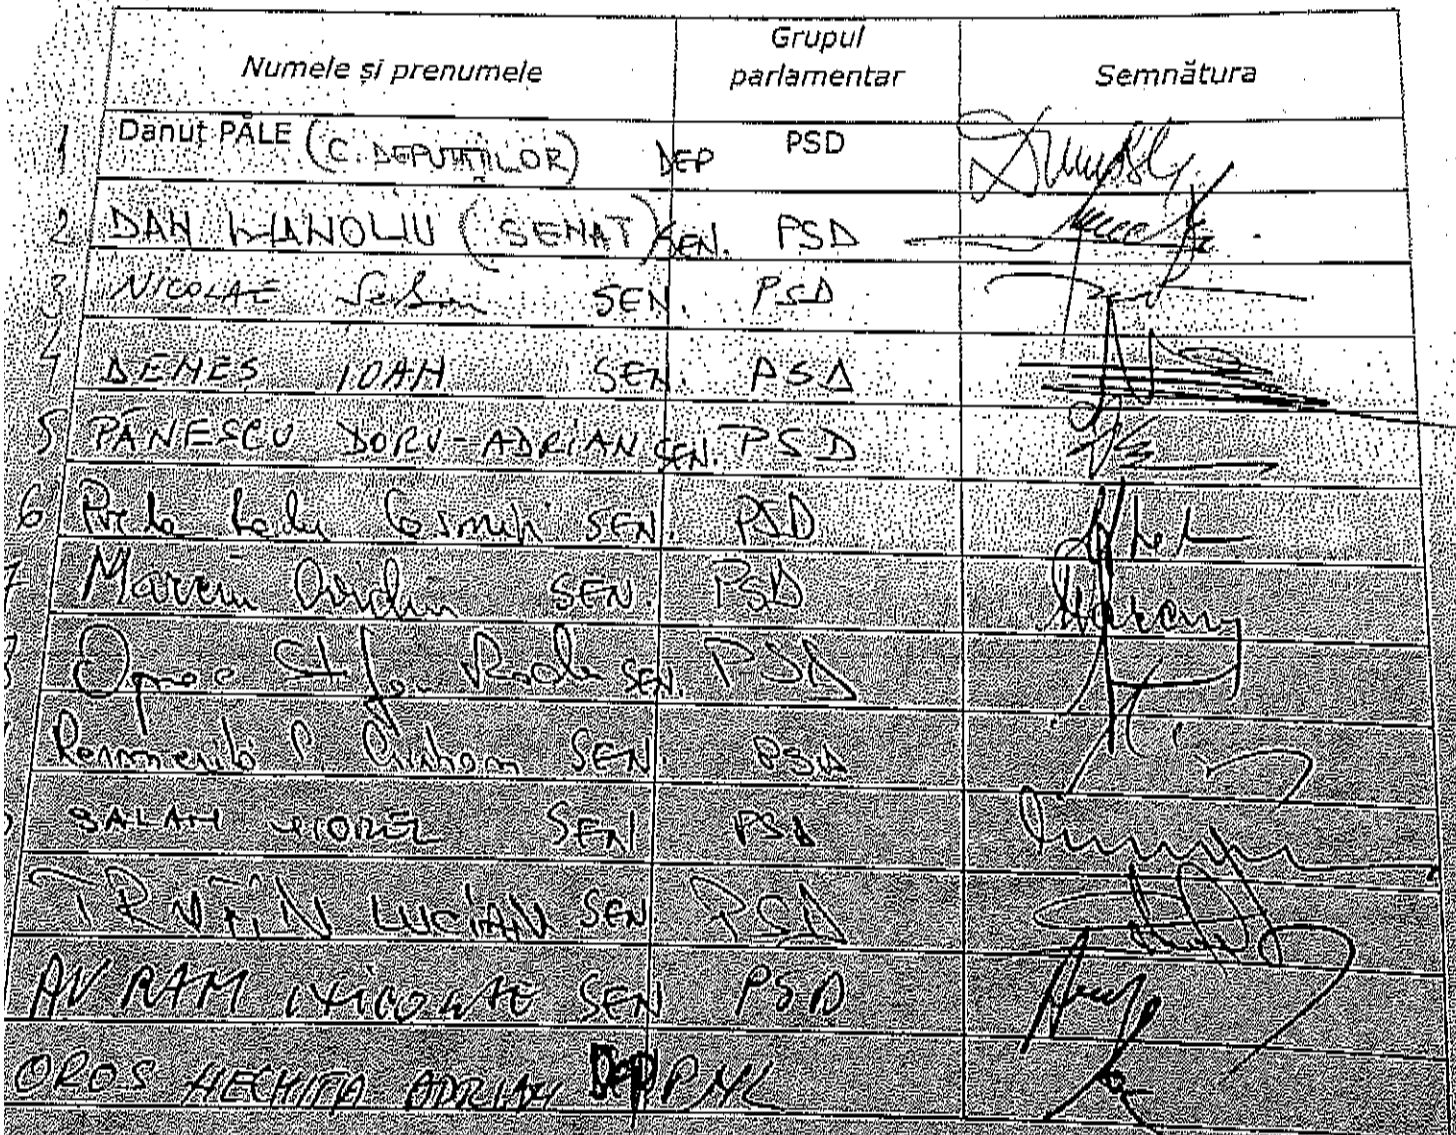 Numele și prenumele Grupul parlamentar Semnătura
1 Danuț PĂLE (C. DEPUTAȚILOR) DEP PSD
2 DAN MANOLIU (SENAT) SEN. PSD
3 NICOLAE SEN. PSD
4 DENEȘ IOAN SEN. PSD
5 PĂNESCU DORU-ADRIAN SEN. PSD
6 Cosmin SEN PSD
7 Marciu Ovidiu SEN. PSD
Oprea Radu SEN. PSD
SEN. PSD
SALAN VIOREL SEN PSD
TRUFIN LUCIAN SEN PSD
AVRAM NICOLAE SEN PSD
OROS NECHITA ADRIAN DEP PNL